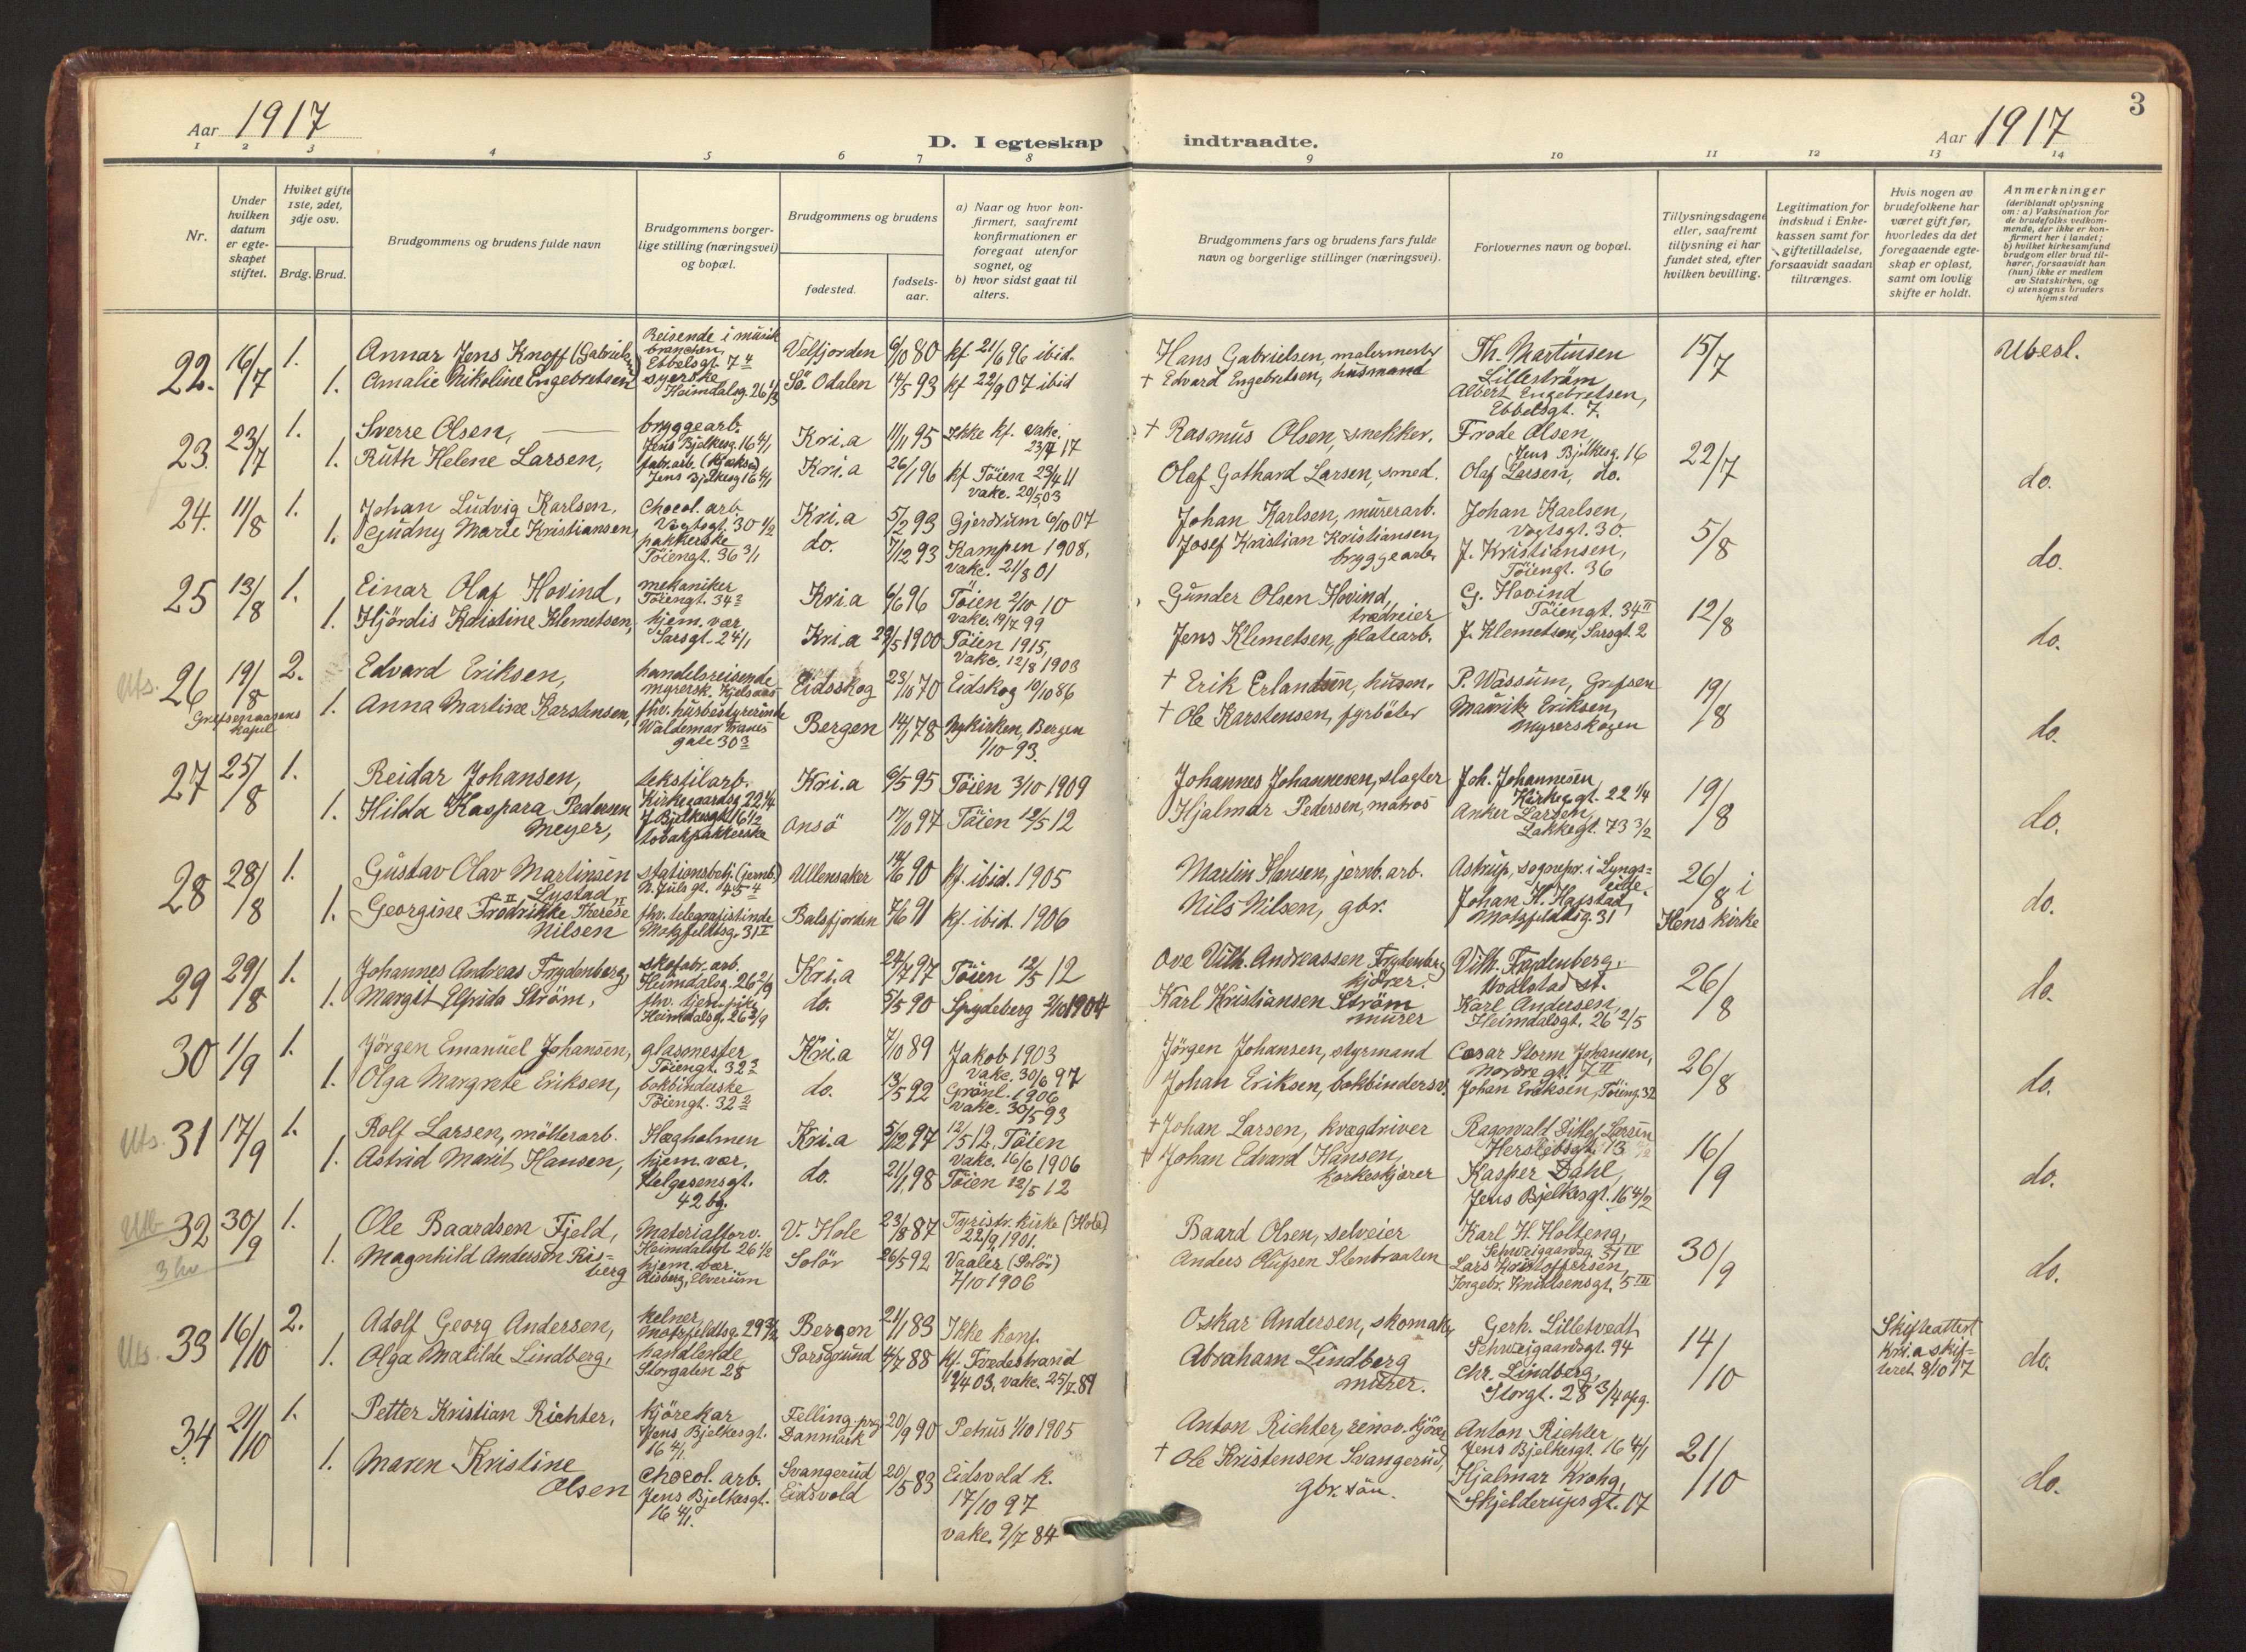 Aar 1917
D. I egteskap indtraadte.
Aar 1917
3
1 2 3 4 5 6 7 8 9 10 11 12 13 14
Nr.
Under hvilken datum er egte-skapet stiftet.
Hviket gifte 1ste, 2det, 3dje osv.
Brdg. Brud.
Brudgommens og brudens fulde navn
Brudgommens borger-lige stilling (næringsvei) og bopæl.
Brudgommens og brudens
fødested.
fødsels-aar.
a) Naar og hvor kon-firmert, saafremt konfirmationen er foregaat utenfor sognet, og
b) hvor sidst gaat til alters.
Brudgommens fars og brudens fars fulde navn og borgerlige stillinger (næringsvei).
Forlovernes navn og bopæl.
Tillysningsdagene eller, saafremt tillysning ei har fundet sted, efter hvilken bevilling.
Legitimation for indskud i Enke-kassen samt for giftetilladelse, forsaavidt saadan tiltrænges.
Hvis nogen av brudefolkene har været gift før, hvorledes da det foregaaende egte-skap er opløst, samt om lovlig skifte er holdt.
Anmerkninger (deriblandt oplysning om: a) Vaksination for de brudefolks vedkom-mende, der ikke er kon-firmert her i landet; b) hvilket kirkesamfund brudgom eller brud til-hører, forsaavidt han (hun) ikke er medlem av Statskirken, og c) utensogns bruders hjemsted
22. 16/7 1. Annar Jens Knoff (Gabrielsen) Reisende i musik branchen, Ebbelsgt. 7 4 Velfjorden 6/10 80 kf 21/6 96 ibid. Hans Gabrielsen, malermester Th. Martinsen Lilleström 15/7 Ubesl.
1. Amalie Nikoline Engebretsen syerske Heimdalsg. 26 1/3 Sö. Odalen 14/5 93 kf 22/9 07 ibid † Edvard Engebretsen, husmand Albert Engebretsen, Ebbelsgt. 7.
23. 23/7 1. Sverre Olsen, bryggearb. Jens Bjelkesg. 16 4/1 Kri.a 11/11 95 Ikke kf. vake. 23/4 17 † Rasmus Olsen, snekker. Frode Olsen, Jens Bjelkesg. 16 22/7 do.
1. Ruth Helene Larsen, fabr.arb. (kjæks) Jens Bjelkesg 16 4/1 Kri.a 26/1 96 kf Töien 23/4 11 vake. 20/5 03 Olaf Gothard Larsen, smed. Olaf Larsen, do.
24. 11/8 1. Johan Ludvig Karlsen, Chocol. arb Vogtsgt. 30 1/2 Kri.a 5/2 93 Gjerdrum 6/10 07 Johan Karlsen, murerarb. Johan Karlsen, Vogtsgt. 30. 5/8 do.
1. Gudny Marie Kristiansen, pakkerske Töiengt. 36 3/1 do. 7/12 93 Kampen 1908, vake. 21/8 01 Josef Kristian Kristiansen, bryggearb. J. Kristiansen, Töiengt. 36
25 13/8 1. Einar Olaf Hovind, mekaniker Töiengt. 34 2 Kri.a 6/6 96 Töien 2/10 10 vake. 19/7 99 Gunder Olsen Hovind, G. Hovind Töiengt. 34 II 12/8 do.
1. Hjördis Kristine Klemetsen, hjem. vær. Sarsgt. 2 4/1 Kri.a 29/5 1900 Töien 1915, vake. 12/8 1903 Jens Klemetsen, platearb. J. Klemetsen, Sarsgt. 2
Uts. 26 19/8 2. Edvard Eriksen, handelsreisende myrersk. Kjelsaas Eidsskog 23/10 70 Eidskog 10/10 86 † Erik Erlandsen, husm. P. Wassum, Grefsen 19/8 do.
Grefsenaasens kapel
1. Anna Martine Karstensen, fhv. husbestyrerinde Waldemar Thranes gate 30 3 Bergen 14/1 78 Nykirken, Bergen 1/10 93. † Ole Karstensen, fyrböter Maurik Eriksen, Myrerskogen
27 25/8 1. Reidar Johansen, tekstilarb. Kirkegaardsg. 22 1/4 Kri.a 6/5 95 Töien 3/10 1909 Johannes Johannesen, slagter Joh. Johannesen, Kirkeg.gt. 22 1/4 19/8 do.
1. Hilda Kaspara Pedersen Meyer, J. Bjelkesgt. 16 1/2 tobakpakkerske Onsö 17/10 97 Töien 12/5 12 Hjalmar Pedersen, matros Anker Larsen, Lakkegt. 73 3/2
28 28/8 1. Gustav Olav Martinsen Lystad, stationsbetj. (jernb.) N. Juls gt. 45 4 Ullensaker 14/6 90 kf. ibid. 1905 Martin Hansen, jernb. arb. Astrup, sognepr. i Lyngs-eide. 26/8 i Hens kirke do.
1. Georgine Fredrikke Therese Nilsen fhv. telegrafistinde Motzfeldtsg. 31 I Balsfjorden 7/6 91 kf. ibid. 1906 Nils Nilsen, gbr. Johan H. Hafstad, Motzfeldtsg. 31
29 29/8 1. Johannes Andreas Frydenberg, skofabr. arb. Heimdalsg. 26 2/9 Kri.a 24/7 97 Töien 12/5 12 Ove Vilh. Andreassen Frydenberg kjörer. Vilh. Frydenberg, 26/8 do.
1. Margit Elfrida Ström, fhv. tjen. pike Heimdalsg. 26 3/9 do. 5/5 90 Spydeberg 2/10 1904 Karl Kristiansen Ström murer Karl Andersen, Heimdalsgt. 26 2/5
30 1/9 1. Jörgen Emanuel Johansen, glasmester Töiengt. 32 3 Kri.a 7/10 89 Jakob 1903 vake. 30/6 97 Jörgen Johansen, styrmand Cæsar Storm Johansen, Nordre gt. 7 II 26/8 do.
1. Olga Margrete Eriksen, bokbinderske Töiengt. 32 3 do. 13/5 92 Grönl. 1906 vake. 30/5 93 Johan Eriksen, bokbindersv. Johan Eriksen, Töieng. 32
Uts. 31 17/9 1. Rolf Larsen, möllerarb. Hægholmen Kri.a 5/12 97 12/5 12. Töien vake. 16/6 1906 † Johan Larsen, kvægdriver Ragnvald Ditlef Larsen Herslebsgt. 13 16/9 do.
1. Astrid Marit Hansen, hjem. vær, Helgesensgt. 42 bg. do. 21/1 98 Töien 12/5 12 † Johan Edvard Hansen, korkeskjærer Kasper Dahl, Jens Bjelkesgt. 16 4/2
Utb 32 30/9 1. Ole Baardsen Fjeld, Materialforv. Heimdalsgt 26 1/2 V. Hole 23/8 87 Tyristr. kirke (Hole) 22/9 1901. Baard Olsen, selveier Karl H. Holteng, Schweigaardsg. 31 IV 30/9 do.
3 hv
1. Magnhild Andersen Ris-berg hjem. vær Risberg, Elverum Solör 26/5 92 Vaaler (Solör) 7/10 1906 Anders Olufsen Stenbraaten Lars Kristoffersen, Ingebr. Knudsensgt. 5 III
Uts. 33 16/10 2. Adolf Georg Andersen, kelner, Motzfeldtsg. 29 3/2 Bergen 21/1 83 Ikke konf. Oskar Andersen, skomak. Gerh. Lilletvedt, Schweigaardsgt. 94 14/10 Skifteattest Kri.a skif-teret 8/10 17 do.
1. Olga Matilde Lindberg, handlende Storgaten 28 Porsgrund 4/7 88 kf. Tvedestrand 12/4 03. vake. 25/7 89 Abraham Lindberg murer. Chr. Lindberg, Storgt. 28 3/4 opg.
34 21/10 1. Petter Kristian Richter, kjörekar Jens Bjelkesgt. 16 4/1. Felling prg Danmark 20/9 90 Petrus 1/10 1905 Anton Richter, renov. kjörer Anton Richter Jens Bjelkesgt. 16 4/1 21/10 do.
1. Maren Kristine Olsen Chocol. arb. Jens Bjelkesgt. 16 4/1. Svangerud Eidsvold 20/5 83 Eidsvold k. 17/10 97 vake. 9/7 84 † Ole Kristensen Svangerud, gbr. sön. Hjalmar Krohg, Skjelderups gt. 17